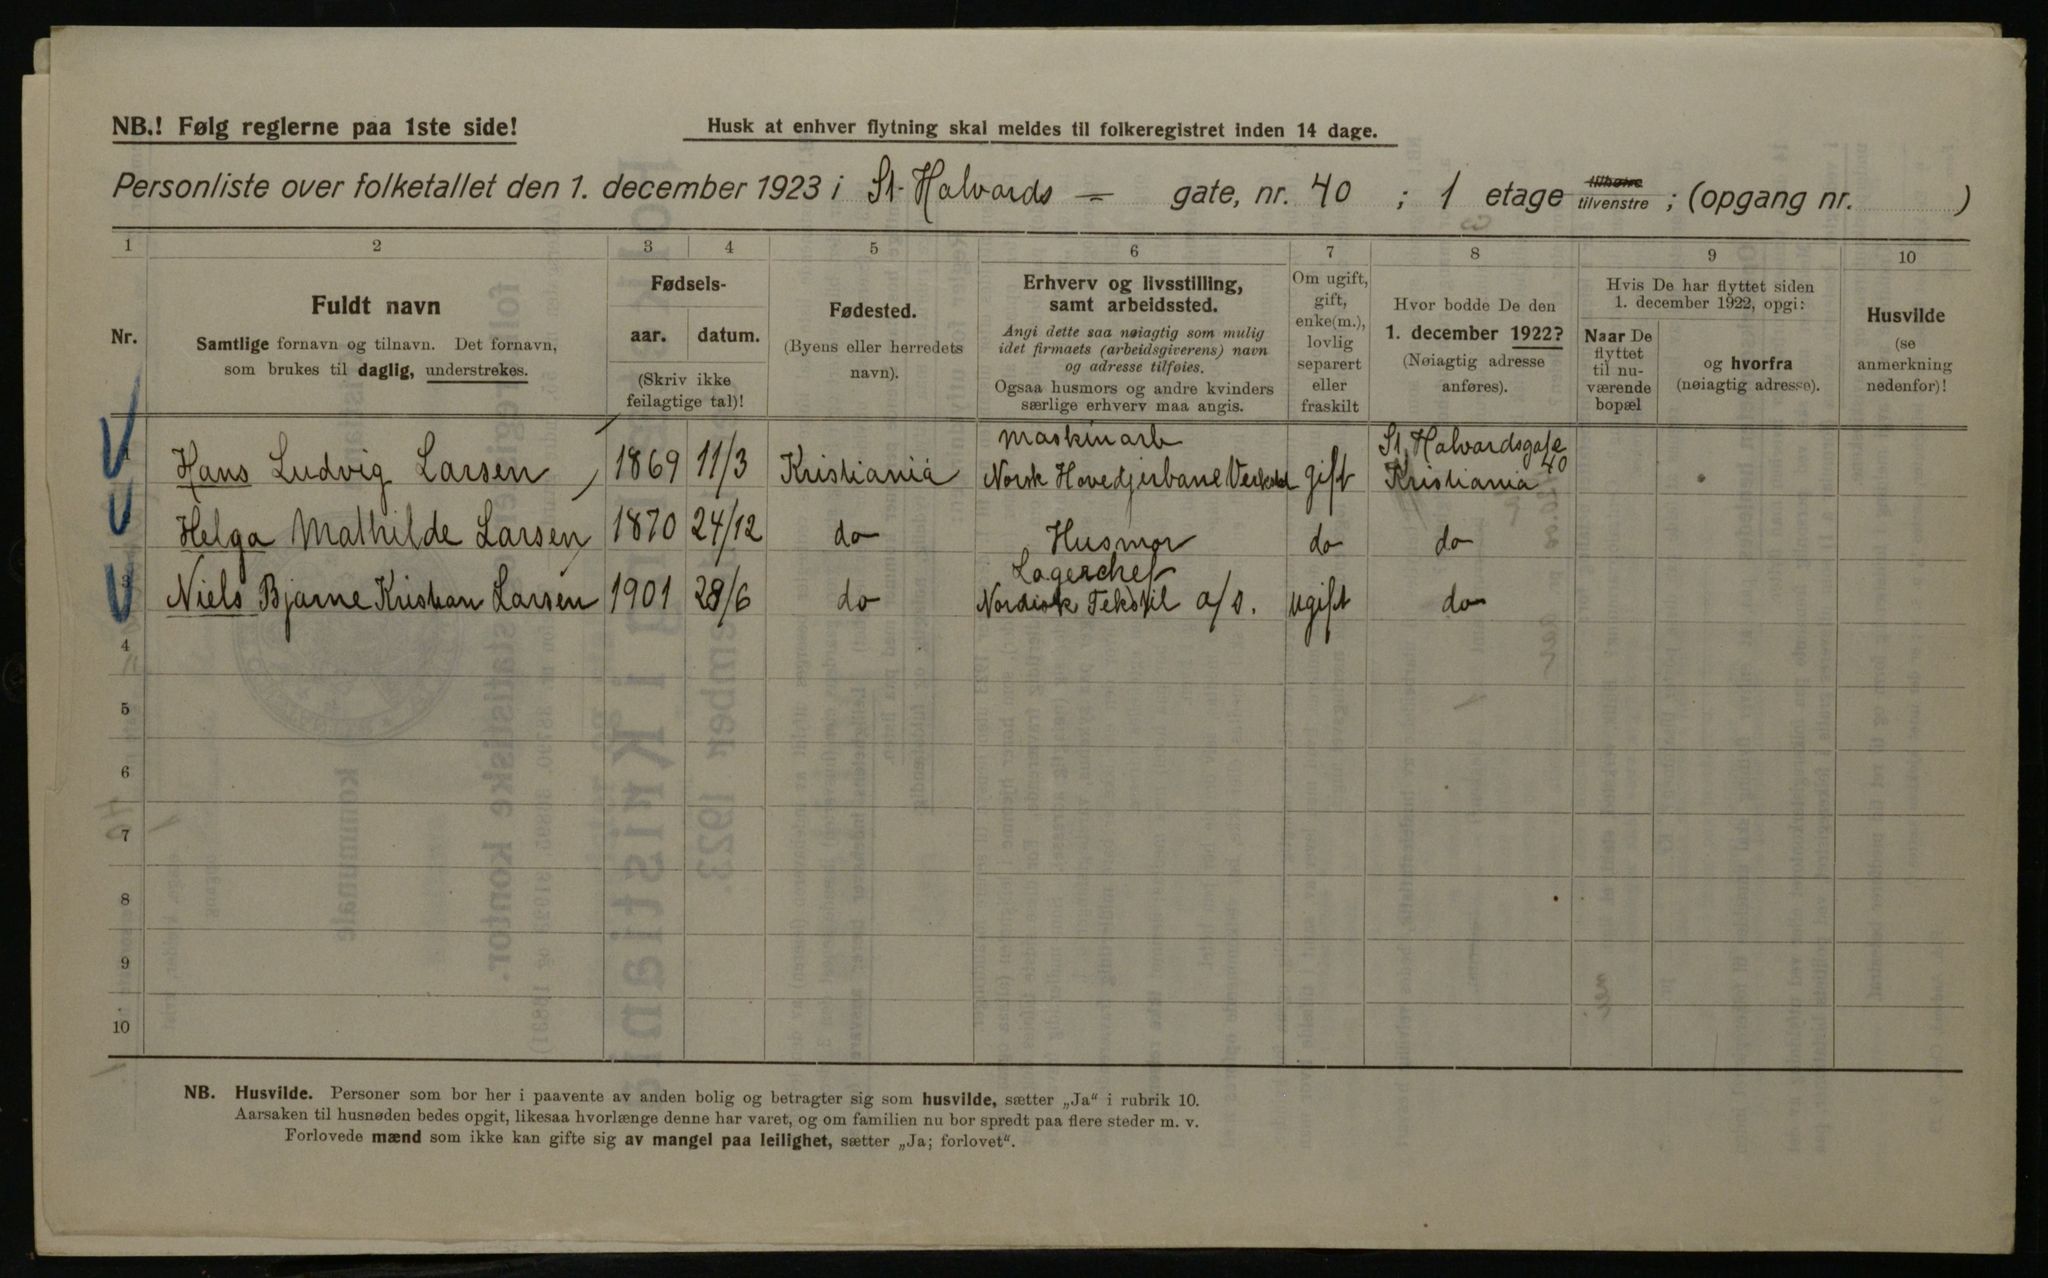 NB.! Følg reglerne paa 1ste side!
Husk at enhver flytning skal meldes til folkeregistret inden 14 dage.
Personliste over folketallet den 1. december 1923 i St. Halvards — gate, nr. 40 ; 1 etage tilhøire tilvenstre ; (opgang nr. )
1 2 3 4 5 6 7 8 9 10
Nr.
Fuldt navn
Samtlige fornavn og tilnavn. Det fornavn,
som brukes til daglig, understrekes.
Fødsels-
aar. datum.
(Skriv ikke
feilagtige tal)!
Fødested.
(Byens eller herredets
navn).
Erhverv og livsstilling,
samt arbeidssted.
Angi dette saa nøiagtig som mulig
idet firmaets (arbeidsgiverens) navn
og adresse tilføies.
Ogsaa husmors og andre kvinders
særlige erhverv maa angis.
Om ugift,
gift,
enke(m.),
lovlig
separert
eller
fraskilt
Hvor bodde De den
1. december 1922?
(Nøiagtig adresse
anføres).
Hvis De har flyttet siden
1. december 1922, opgi:
Naar De
flyttet
til nu-
værende
bopæl
og hvorfra
(nøiagtig adresse).
Husvilde
(se
anmerkning
nedenfor)!
maskinarb St. Halvardsgate 40
1 Hans Ludvig Larsen 1869 11/3 Kristiania Norsk Hovedjerbane Verksted gift Kristiania
Helga Mathilde Larsen 1870 24/12 do Husmor do do
Lagerchef
3 Niels Bjarne Kristian Larsen 1901 28/6 do Nordisk Tekstil a/s. ugift do
4
5
6
7
8
9
10
NB. Husvilde. Personer som bor her i paavente av anden bolig og betragter sig som husvilde, sætter „Ja“ i rubrik 10.
Aarsaken til husnøden bedes opgit, likesaa hvorlænge denne har varet, og om familien nu bor spredt paa flere steder m. v.
Forlovede mænd som ikke kan gifte sig av mangel paa leilighet, sætter „Ja; forlovet“.